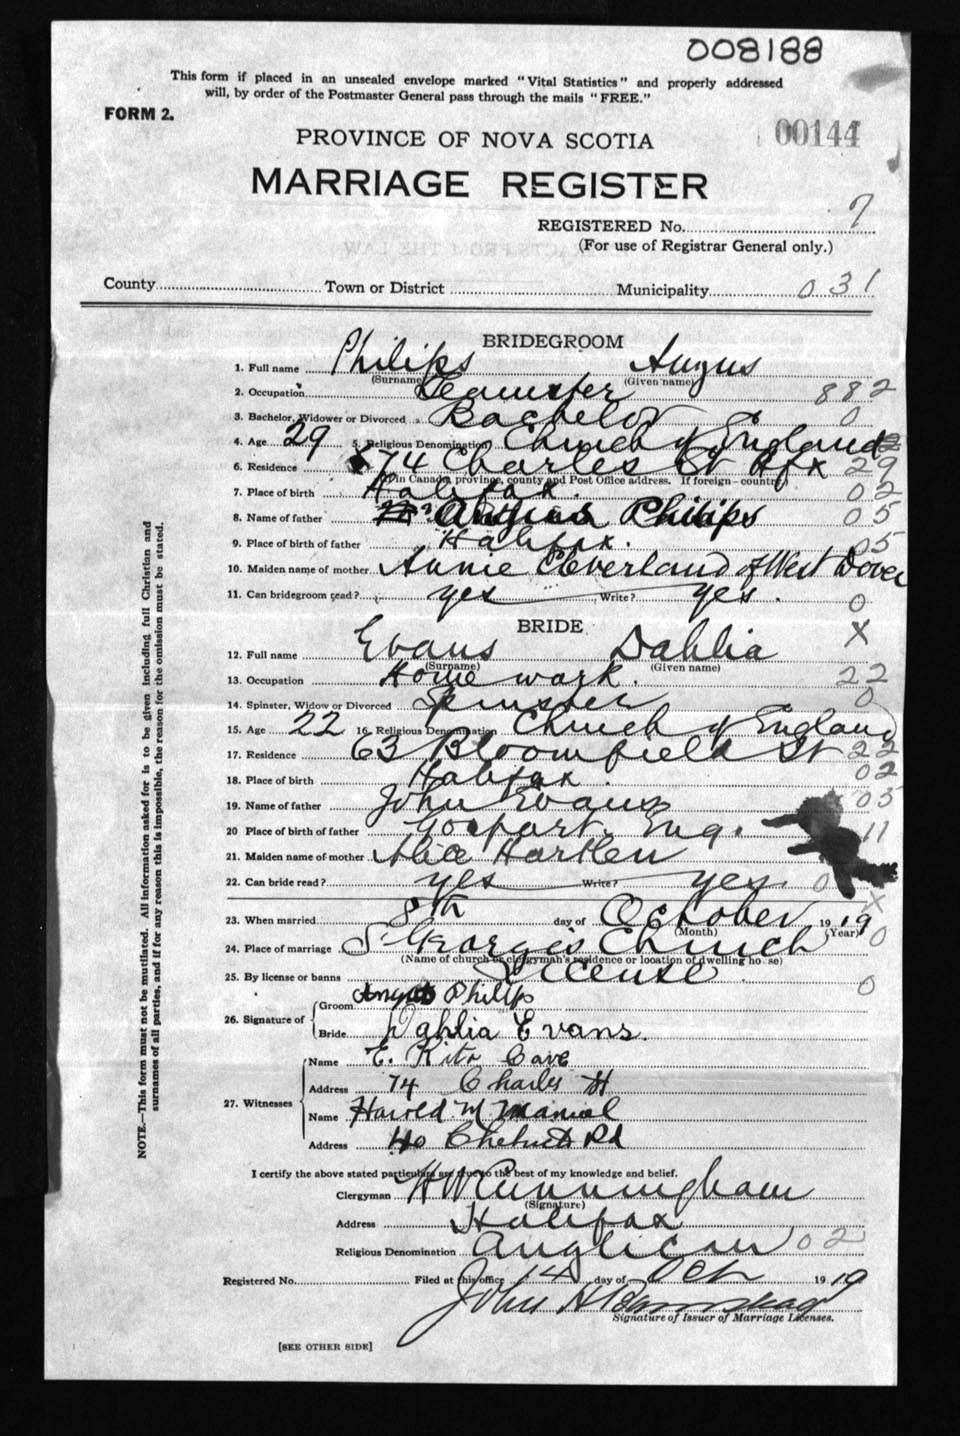 008188
This form if placed in an unsealed envelope marked "Vital Statistics" and properly addressed
will, by order of the Postmaster General pass through the mails "FREE."
FORM 2.
00144
PROVINCE OF NOVA SCOTIA
MARRIAGE REGISTER
REGISTERED No. 7
(For use of Registrar General only.)
County Town or District Municipality 031
BRIDEGROOM
1. Full name Philips Angus
(Surname) (Given name)
2. Occupation Teamster 882
3. Bachelor, Widower or Divorced Bachelor 0
4. Age 29 5. Religious Denomination Church of England 2
6. Residence 74 Charles St Hfx 29
(If in Canada, province, county and Post Office address. If foreign—country)
7. Place of birth Halifax. 02
8. Name of father Philips 05
9. Place of birth of father Halifax. 05
10. Maiden name of mother Annie Cleverland of West Dover
11. Can bridegroom read? yes Write? yes. 0
BRIDE X
12. Full name Evans Dahlia
(Surname) (Given name)
13. Occupation Home work. 22
14. Spinster, Widow or Divorced Spinster 0
15. Age 22 16. Religious Denomination Church of England
17. Residence 63 Bloomfield St 22
18. Place of birth Halifax 02
19. Name of father John Evans 05
20 Place of birth of father Gosport. Eng. 11
21. Maiden name of mother Alice Hartlen
22. Can bride read? yes Write? yes 0
X
23. When married 8th day of October 1919
(Month) (Year)
24. Place of marriage St George's Church 0
(Name of church or clergyman's residence or location of dwelling house)
25. By license or banns License. 0
26. Signature of Groom Angus Philips
Bride Dahlia Evans.
27. Witnesses Name E. Rita Cave
Address 74 Charles St
Name Harold M
Address 40 Rd
I certify the above stated particulars are true to the best of my knowledge and belief.
Clergyman H W Cunningham
(Signature)
Address Halifax
Religious Denomination Anglican 02
Registered No. Filed at this office 14 day of Oct 1919
John H
Signature of Issuer of Marriage Licenses.
[SEE OTHER SIDE]
NOTE.—This form must not be mutilated. All information asked for is to be given including full Christian and
surnames of all parties, and if for any reason this is impossible, the reason for the omission must be stated.